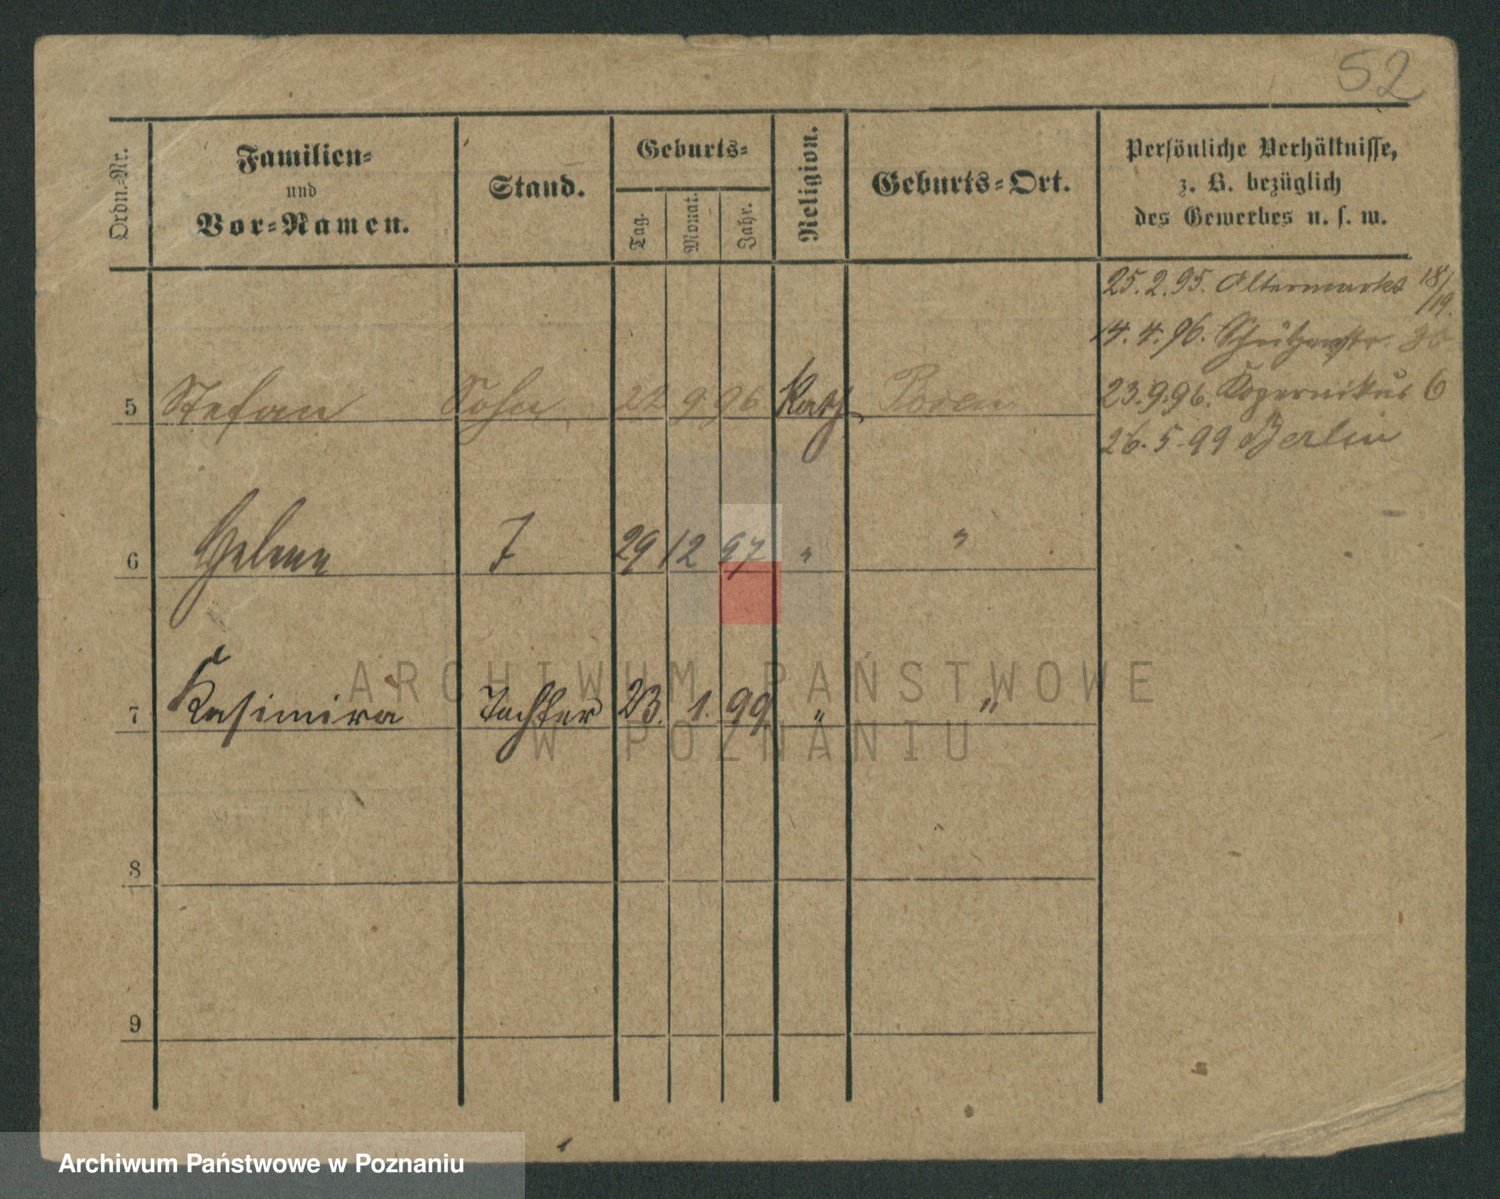 52
Ordn.-Nr.
Familien-
und
Vor-Namen.
Stand.
Geburts-
Tag.
Monat.
Jahr.
Religion.
Geburts-Ort.
Persönliche Verhältnisse,
z. B. bezüglich
des Gewerbes u. s. w.
25.2.95. Altermarkt 18/
/19.
14.4.96. Schützenstr. 30
5 Stefan Sohn 22 9 96 Kath. Posen
23.9.96. Kopernikus 6
26.5.99 Berlin
6 Helene T 29 12 97 " "
7 Kasimira Tochter 23. 1. 99 " "
8
9
ARCHIWUM PAŃSTWOWE
W POZNANIU
Archiwum Państwowe w Poznaniu